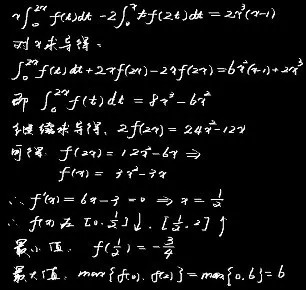 x∫₀²ˣ f(t)dt - 2∫₀ˣ t f(2t)dt = 2x³(x-1)
对x求导得:
∫₀²ˣ f(t)dt + 2x f(2x) - 2x f(2x) = 6x²(x-1) + 2x³
即 ∫₀²ˣ f(t)dt = 8x³ - 6x²
继续求导得, 2f(2x) = 24x² - 12x
可得 f(2x) = 12x² - 6x ⇒
f(x) = 3x² - 3x
∴ f'(x) = 6x - 3 = 0 ⇒ x = 1/2
∴ f(x) 在 [0, 1/2] ↓, [1/2, 2] ↑
最小值, f(1/2) = -3/4
最大值, max{f(0), f(2)} = max{0, 6} = 6